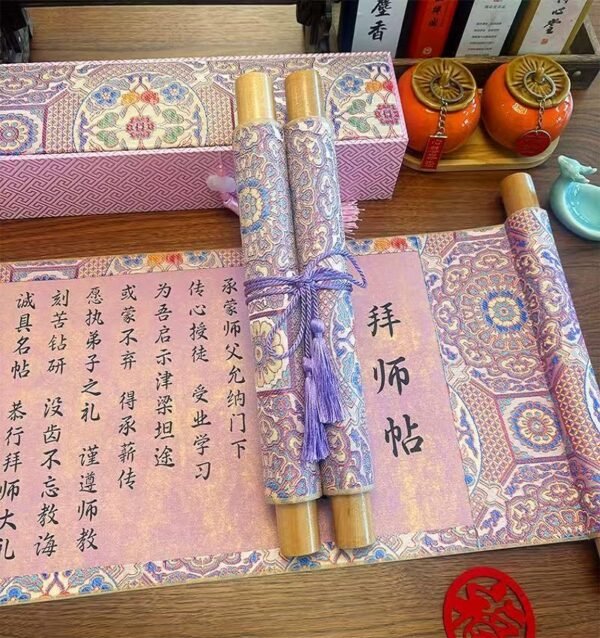 拜师帖
承蒙师父允纳门下
传心授徒 受业学习
为吾启示津梁坦途
或蒙不弃 得承薪传
愿执弟子之礼 谨遵师教
刻苦钻研 没齿不忘教诲
诚具名帖 恭行拜师大礼
香
心堂